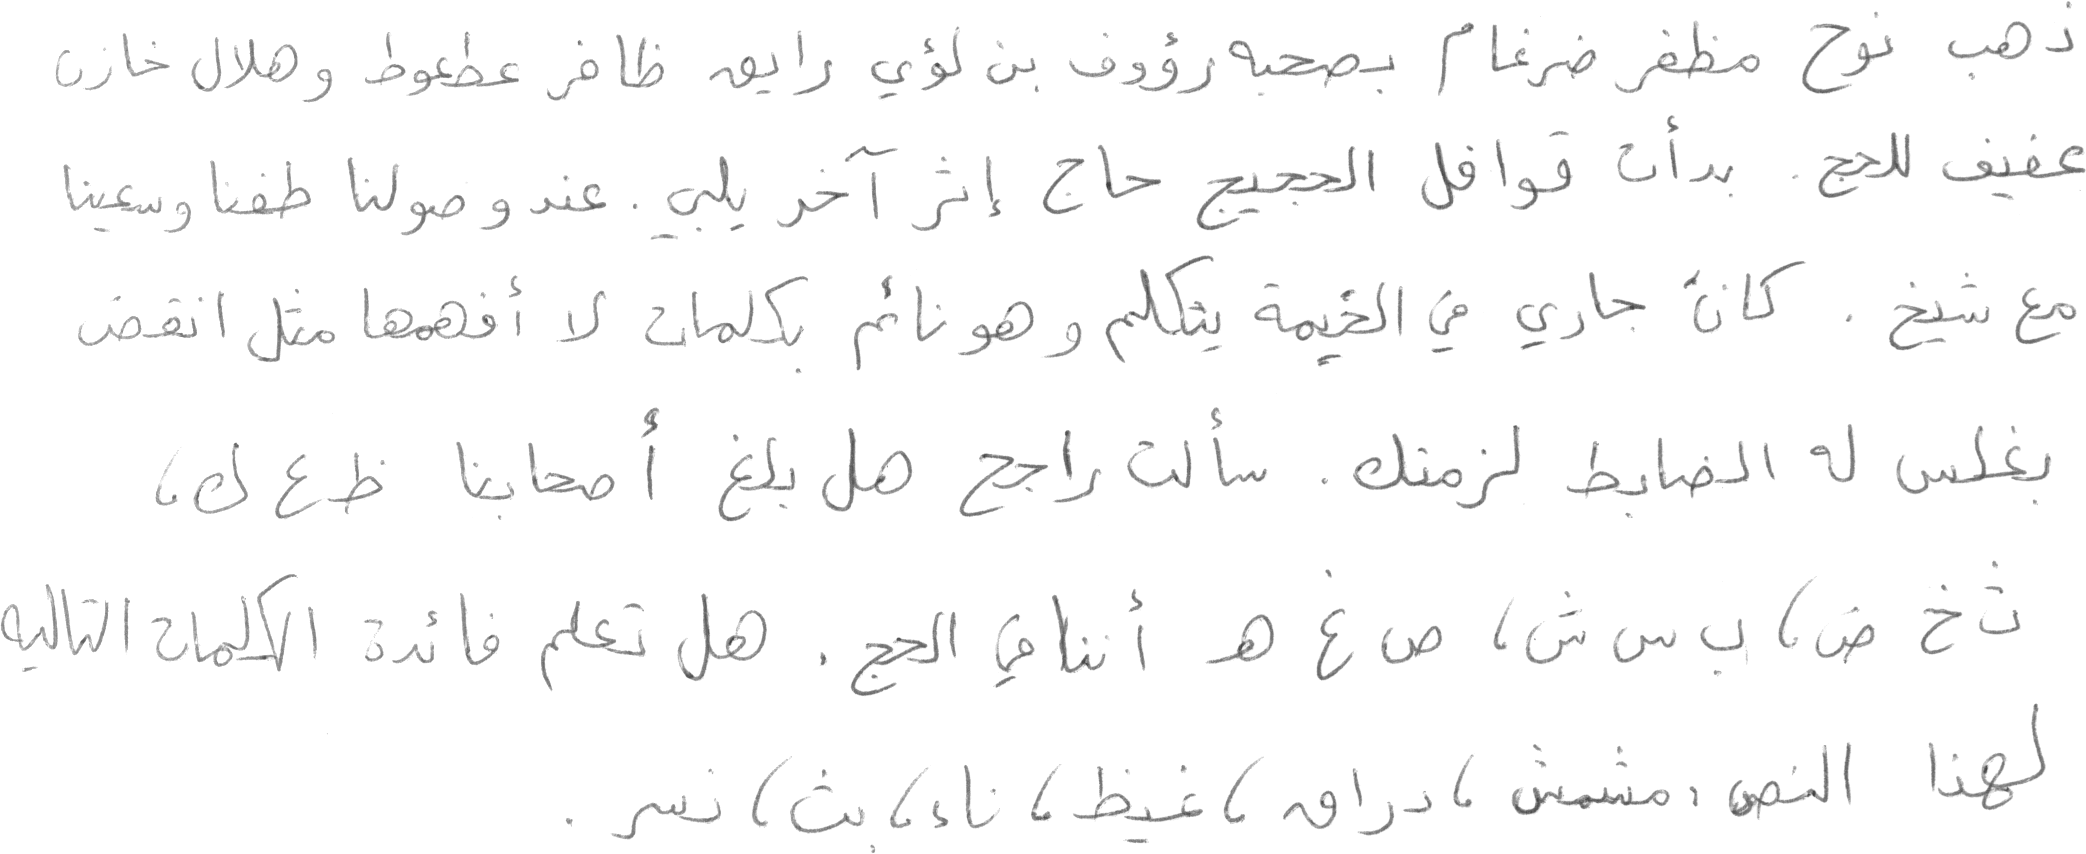 ذهب نوح مظفر ضرغام بصحبه رؤوف بن لؤي رايق ظافر عطعوط وهلال خازن
عفيف للحج. بدأت قوافل الحجيج حاج إثر آخر يلبي. عند وصولنا طفنا وسعينا
مع شيخ. كان جاري في الخيمة يتكلم وهو نائم بكلمات لا أفهمها مثل انقض
بغلس له الضابط لزمنك. سألت راجح هل بلغ أصحابنا ظ ع ك،
ث خ ض، ب س ش، ص غ هـ أننا في الحج. هل تعلم فائدة الكلمات التاليه
لهذا النص: مشمش، دراق، غيظ، ناء، بث، نسر.